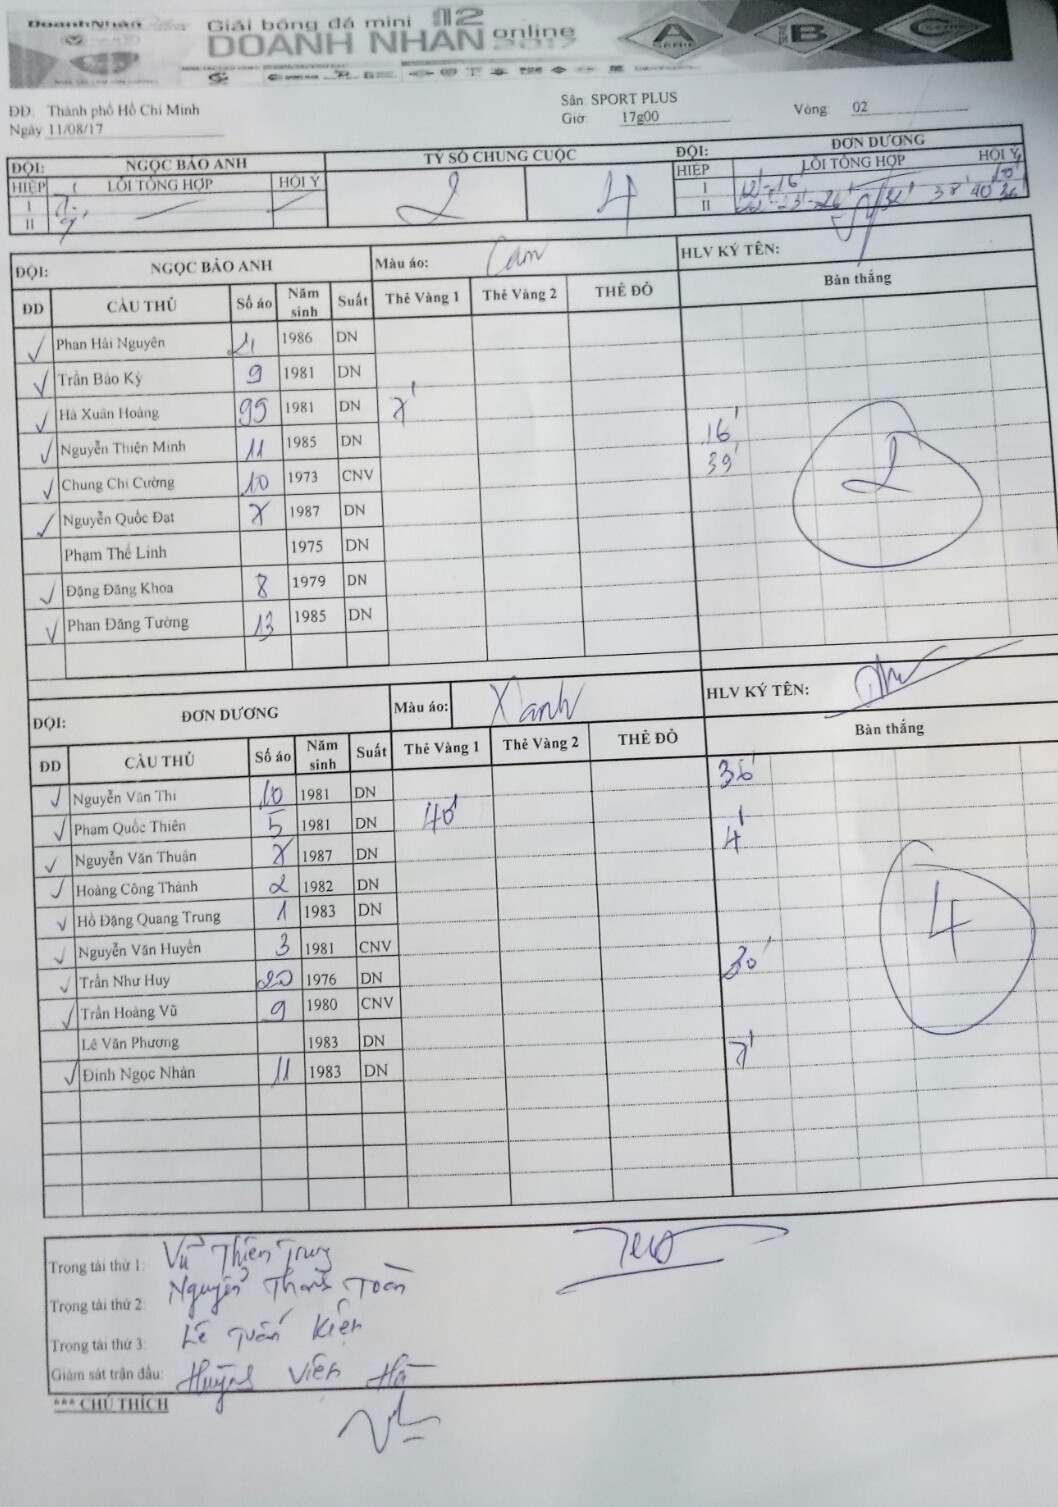 DoanhNhân
Giải bóng đá mini 12
DOANH NHÂN online 2017
A SERIE B SERIE C SERIE
ĐĐ: Thành phố Hồ Chí Minh Sân: SPORT PLUS
Ngày 11/08/17 Giờ: 17g00 Vòng: 02
ĐỘI: NGỌC BẢO ANH TỶ SỐ CHUNG CUỘC ĐỘI: ĐƠN DƯƠNG
HIỆP LỖI TỔNG HỢP HỘI Ý 2 4 HIỆP LỖI TỔNG HỢP HỘI Ý
I I 12' - 16' 10'
II 9' II 38' 40' 36'
ĐỘI: NGỌC BẢO ANH Màu áo: Cam HLV KÝ TÊN:
ĐD CẦU THỦ Số áo Năm sinh Suất Thẻ Vàng 1 Thẻ Vàng 2 THẺ ĐỎ Bàn thắng
Phan Hải Nguyên 21 1986 DN
Trần Bảo Kỳ 9 1981 DN
Hà Xuân Hoàng 95 1981 DN 7'
Nguyễn Thiện Minh 11 1985 DN 16'
Chung Chí Cường 10 1973 CNV 39'
Nguyễn Quốc Đạt 7 1987 DN 2
Phạm Thế Linh 1975 DN
Đặng Đăng Khoa 8 1979 DN
Phan Đăng Tường 13 1985 DN
ĐỘI: ĐƠN DƯƠNG Màu áo: Xanh HLV KÝ TÊN:
ĐD CẦU THỦ Số áo Năm sinh Suất Thẻ Vàng 1 Thẻ Vàng 2 THẺ ĐỎ Bàn thắng
Nguyễn Văn Thi 10 1981 DN 36'
Phạm Quốc Thiên 5 1981 DN 40'
Nguyễn Văn Thuận 7 1987 DN 4'
Hoàng Công Thành 2 1982 DN
Hồ Đặng Quang Trung 1 1983 DN 4
Nguyễn Văn Huyền 3 1981 CNV
Trần Như Huy 20 1976 DN 30'
Trần Hoàng Vũ 9 1980 CNV
Lê Văn Phương 1983 DN
Đinh Ngọc Nhân 11 1983 DN 7'
Trọng tài thứ 1: Vũ Thiên Trung
Trọng tài thứ 2: Nguyễn Thanh Toàn
Trọng tài thứ 3: Lê Tuấn Kiện
Giám sát trận đấu: Huỳnh Viên Hà
*** CHÚ THÍCH